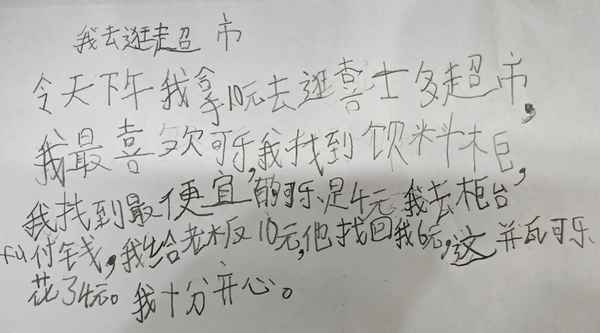 我去逛超市
今天下午我拿10元去逛喜士多超市,
我最喜欢可乐,我找到饮料柜
我找到最便宜的可乐是4元 我去柜台,
fu付钱,我给老板10元,他找回我6元,这并瓦可乐
花了4元。我十分开心。